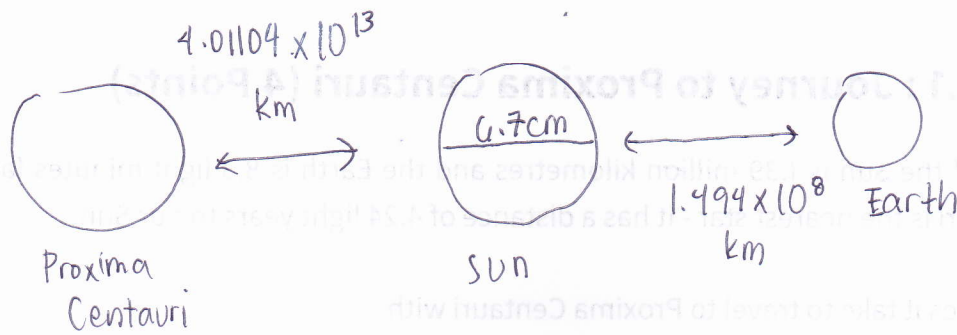 4.01104 × 10¹³
km
6.7cm
1.494 × 10⁸
km
Earth
Proxima
Centauri
Sun